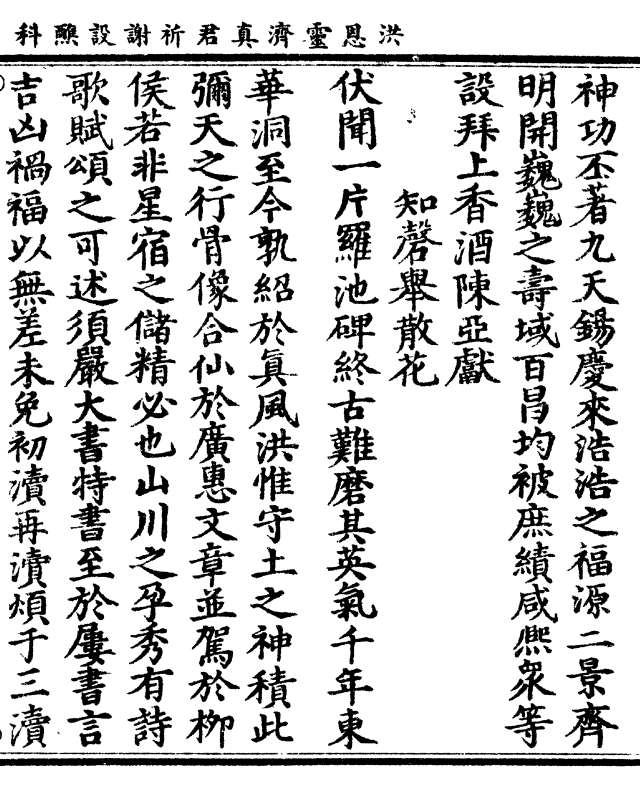 洪恩靈濟真君祈謝設醮科
神功丕著九天錫慶來浩浩之福源二景齊
明開巍巍之壽域百昌均被庶績咸熙衆等
設拜上香酒陳亞獻
知磬舉散花
伏聞一片羅池碑終古難磨其英氣千年東
華洞至今孰紹於眞風洪惟守土之神積此
彌天之行骨像合仙於廣惠文章並駕於柳
侯若非星宿之儲精必也山川之孕秀有詩
歌賦頌之可述須嚴大書特書至於屢書言
吉凶禍福以無差未免初瀆再瀆煩于三瀆